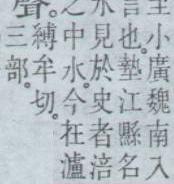 小廣魏南入
言也。墊江縣名
水見於史者涪
之中水。今在瀘
聲。縛牟切。
三部。